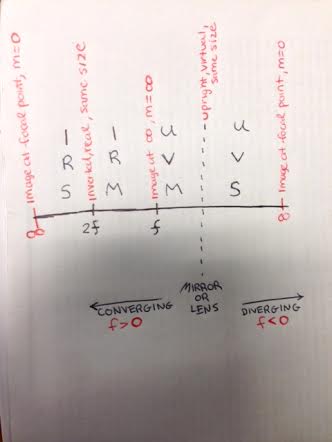 Image at focal point, m=0
Inverted, real, same size
Image at ∞, m=∞
upright, virtual,
same size
Image at focal point, m=0
I I U U
R R V V
S M M S
∞ 2f f ∞
CONVERGING
f>0
MIRROR
OR
LENS
DIVERGING
f<0